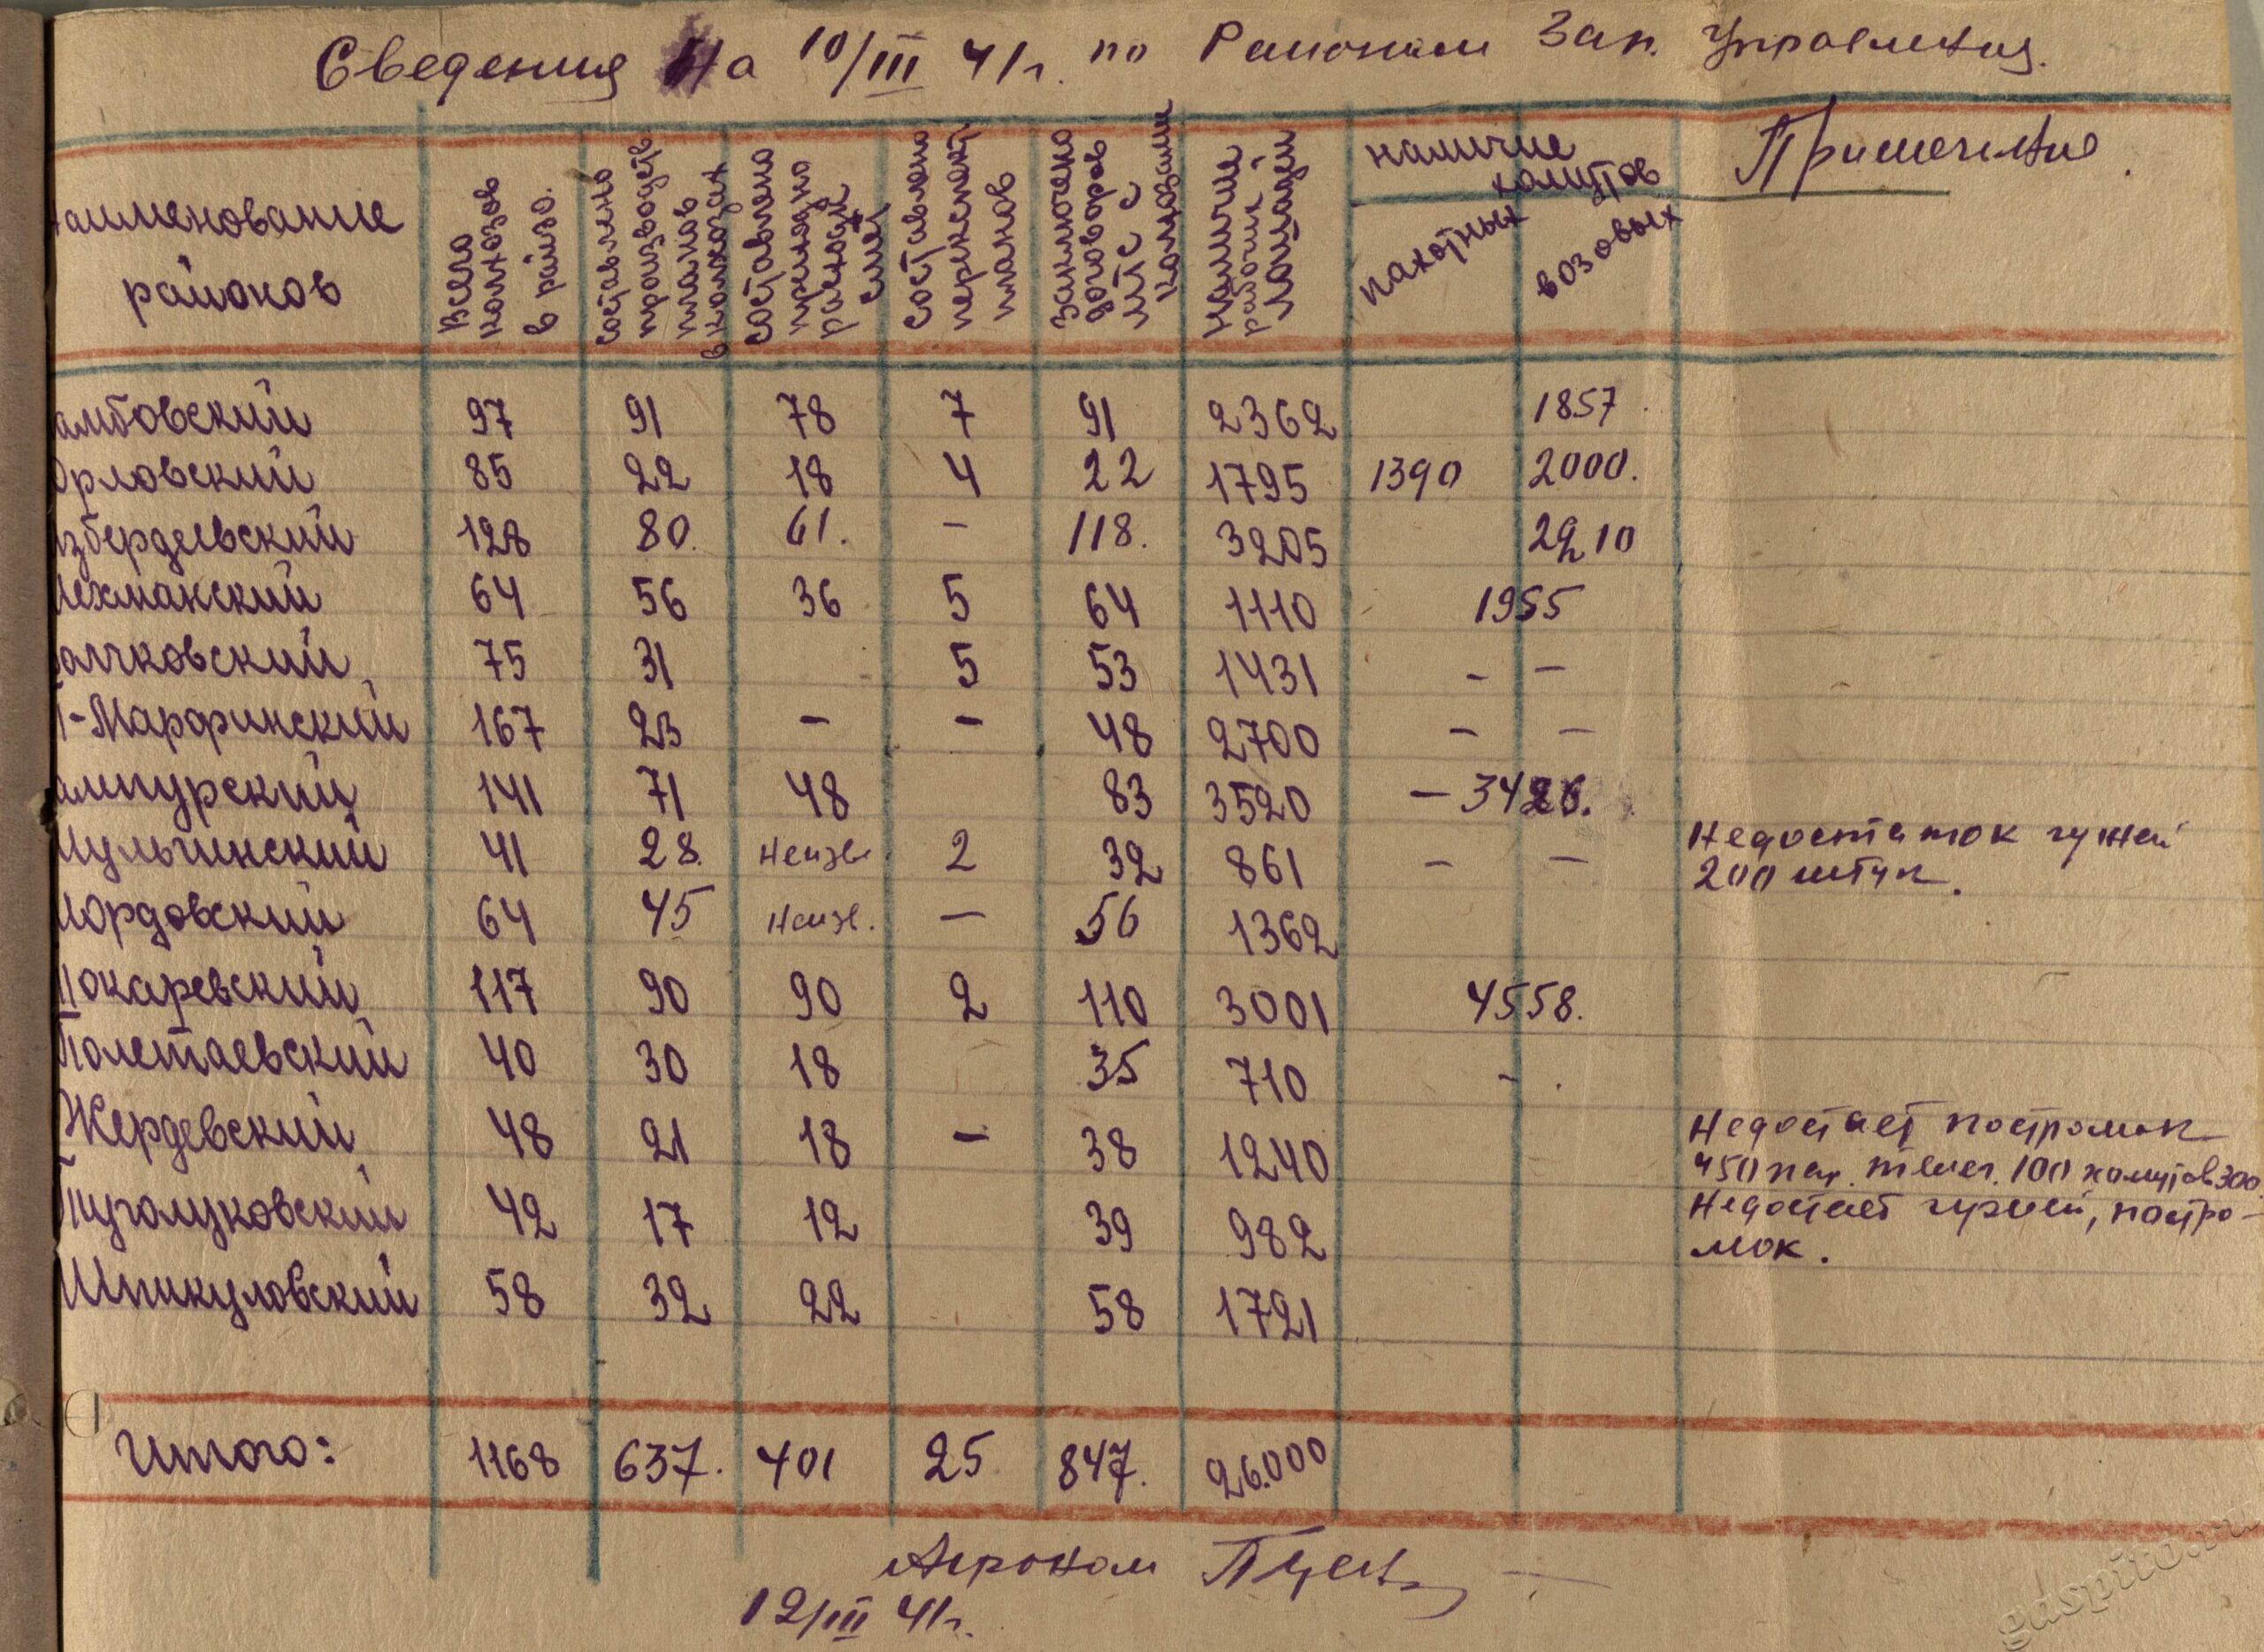 Сведения На 10/III 41г. по Районам Зап. Управления.
наименование районов
Всего колхозов в районе.
Составлено производств планов в колхозах
Составлено приходно расходн смет
Составлено перспект планов
Заключено договоров мтс с колхозами
Наличие рабочих лошадей
наличие хомутов
пахотных
возовых
Примечание
амбовский 97 91 78 7 91 2362 1857
Орловский 85 22 18 4 22 1795 1390 2000.
избердеевский 128 80. 61. – 118. 3205 2210
Лехманский 64 56 36 5 64 1110 1955
алчковский 75 31 5 53 1431 – –
Г-Марфинский 167 23 – – 48 2700 – –
ампурский 141 71 48 83 3520 – 3426.
Шульгинский 41 28. Неизв. 2 32 861 – – Недостаток гужей
200 штук.
Мордовский 64 45 Неизв. – 56 1362
Токаревский 117 90 90 2 110 3001 4558.
Полетаевский 40 30 18 35 710 – .
Жердевский 48 21 18 – 38 1240 Недостает постромок
450 пар. телег. 100 хомутов 300
Туголуковский 42 17 12 39 982 Недостает гужей, постро-
мок.
Шпикуловский 58 32 22 58 1721
Итого: 1168 637. 401 25 847. 26.000
Агроном
12/III 41г.
gaspito.ru